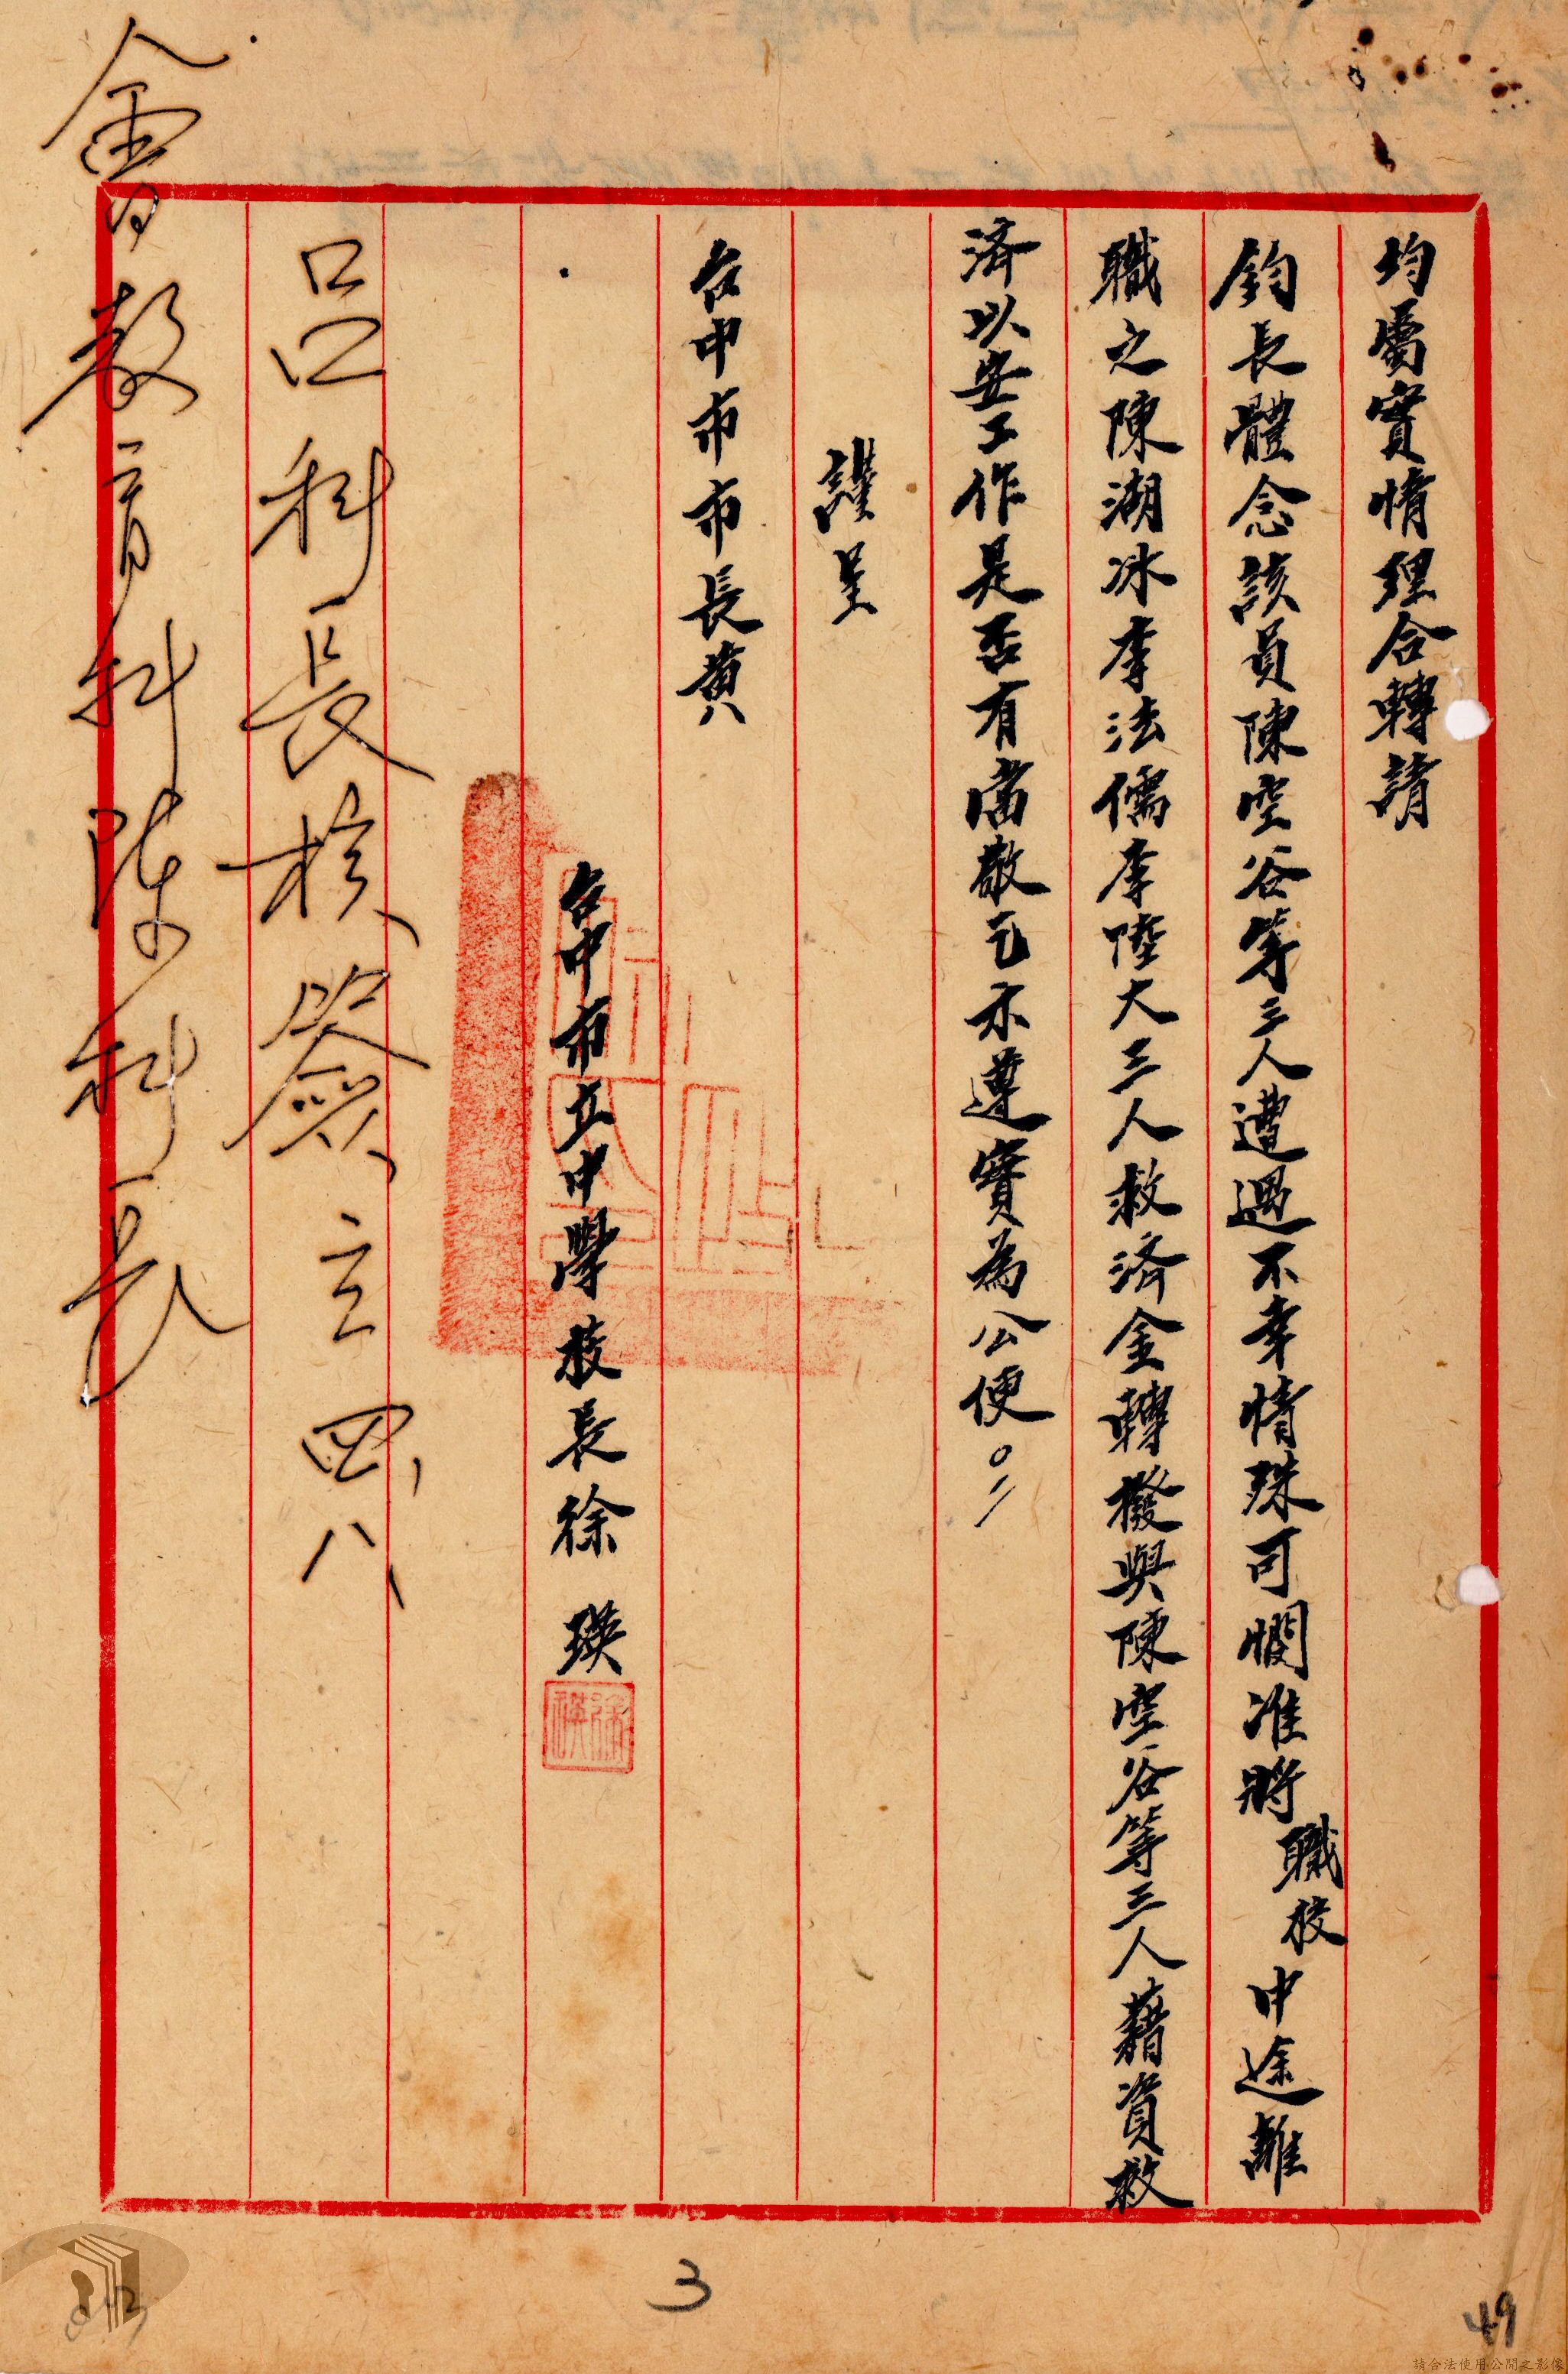 均屬實情理合轉請
鈞長體念該員陳空谷等三人遭遇不幸情殊可憫准將職校中途離
職之陳湖冰李法儒李陸大三人救済金轉撥與陳空谷等三人藉資救
済以安工作是否有當敬乞示遵實為公便。
謹呈
台中市市長黃
台中市立中學校長徐瑛
呂科長核簽
四八
會教育科陳科長
3
49
請合法使用公開之影像